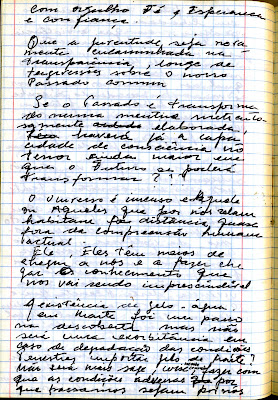 com orgulho Fé e Esperança
e confiança.
Que a juventude seja nova
mente encaminhada na
transparência, longe de
sobre o nosso
Passado comum
Se o Passado é transforma
do numa mentira meticulo
samente elaborada,
haverá já a capa
cidade de consciência no
terror ainda maior em
que o Futuro se poderá
transformar???
O Universo é imenso e Aquele
ou Aqueles que por nós zelam
habitam na distância quase
fora da compreensão humana
actual.
Ele, Eles têm meios de
chegar a nós e a fazer che
gar o conhecimento que
nos vai sendo imprescindível
A existência de gelo-água
em Marte foi um passo
na descoberta mas não
será uma exorbitância em
caso de degradação das condições
terrestres importar gelo de Marte?
Mas será mais sage, fazer com
que as condições adversas por
que passamos sejam